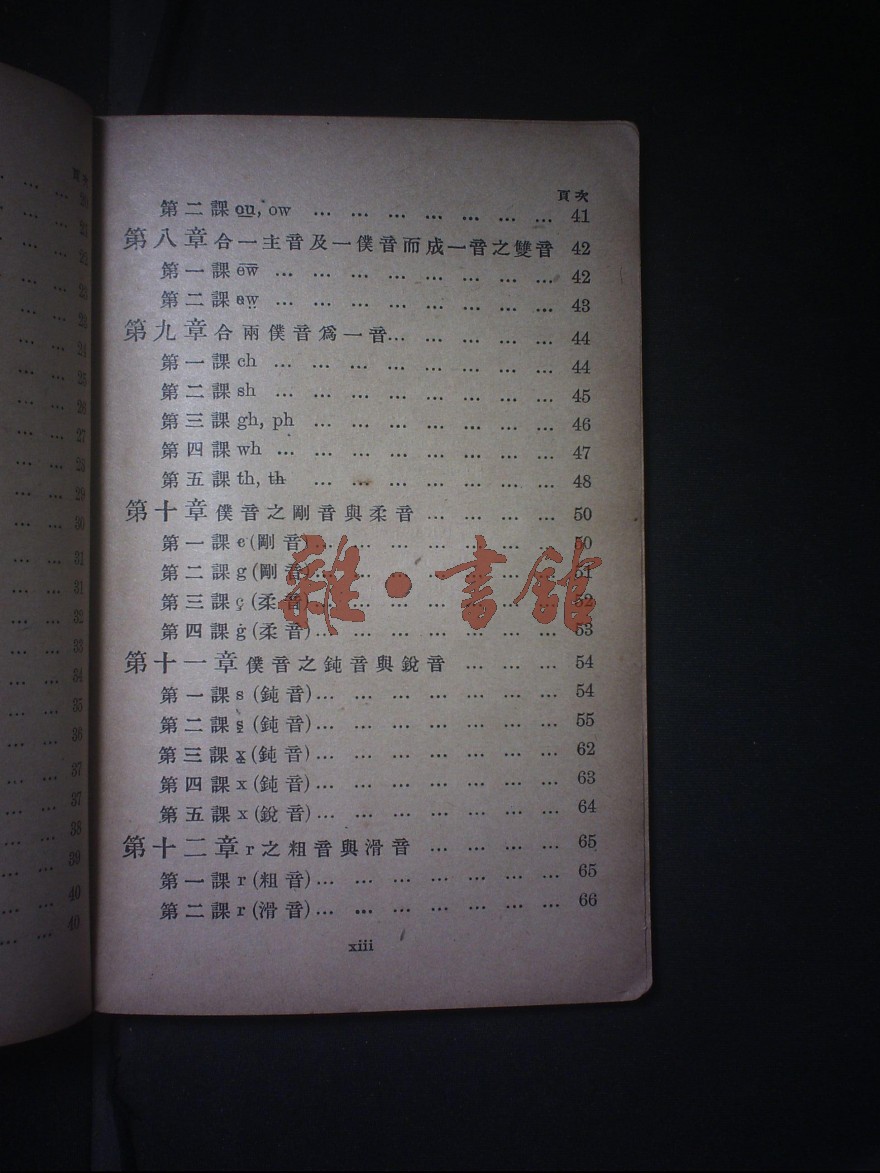 頁次
第二課 ou, ow ... ... ... ... ... ... ... 41
第八章 合一主音及一僕音而成一音之雙音 42
第一課 ew ... ... ... ... ... ... ... ... 42
第二課 aw ... ... ... ... ... ... ... ... 43
第九章 合兩僕音爲一音... ... ... ... ... 44
第一課 ch ... ... ... ... ... ... ... ... 44
第二課 sh ... ... ... ... ... ... ... ... 45
第三課 gh, ph ... ... ... ... ... ... ... 46
第四課 wh ... ... ... ... ... ... ... ... 47
第五課 th, th ... ... ... ... ... ... ... 48
第十章 僕音之剛音與柔音 ... ... ... ... 50
第一課 c (剛音)... ... ... ... ... ... ... 50
第二課 g (剛音)... ... ... ... ... ... ... 51
第三課 ç (柔音)... ... ... ... ... ... ... 52
第四課 ġ (柔音)... ... ... ... ... ... ... 53
第十一章 僕音之鈍音與銳音 ... ... ... 54
第一課 s (鈍音)... ... ... ... ... ... ... 54
第二課 s̱ (鈍音)... ... ... ... ... ... ... 55
第三課 x̱ (鈍音)... ... ... ... ... ... ... 62
第四課 x (鈍音)... ... ... ... ... ... ... 63
第五課 x (銳音)... ... ... ... ... ... ... 64
第十二章 r之粗音與滑音 ... ... ... ... 65
第一課 r (粗音)... ... ... ... ... ... ... 65
第二課 r (滑音)... ... ... ... ... ... ... 66
xiii
雜·書館
頁次
20
21
22
23
23
24
25
26
27
28
29
30
31
31
32
33
34
35
36
37
37
38
39
40
40